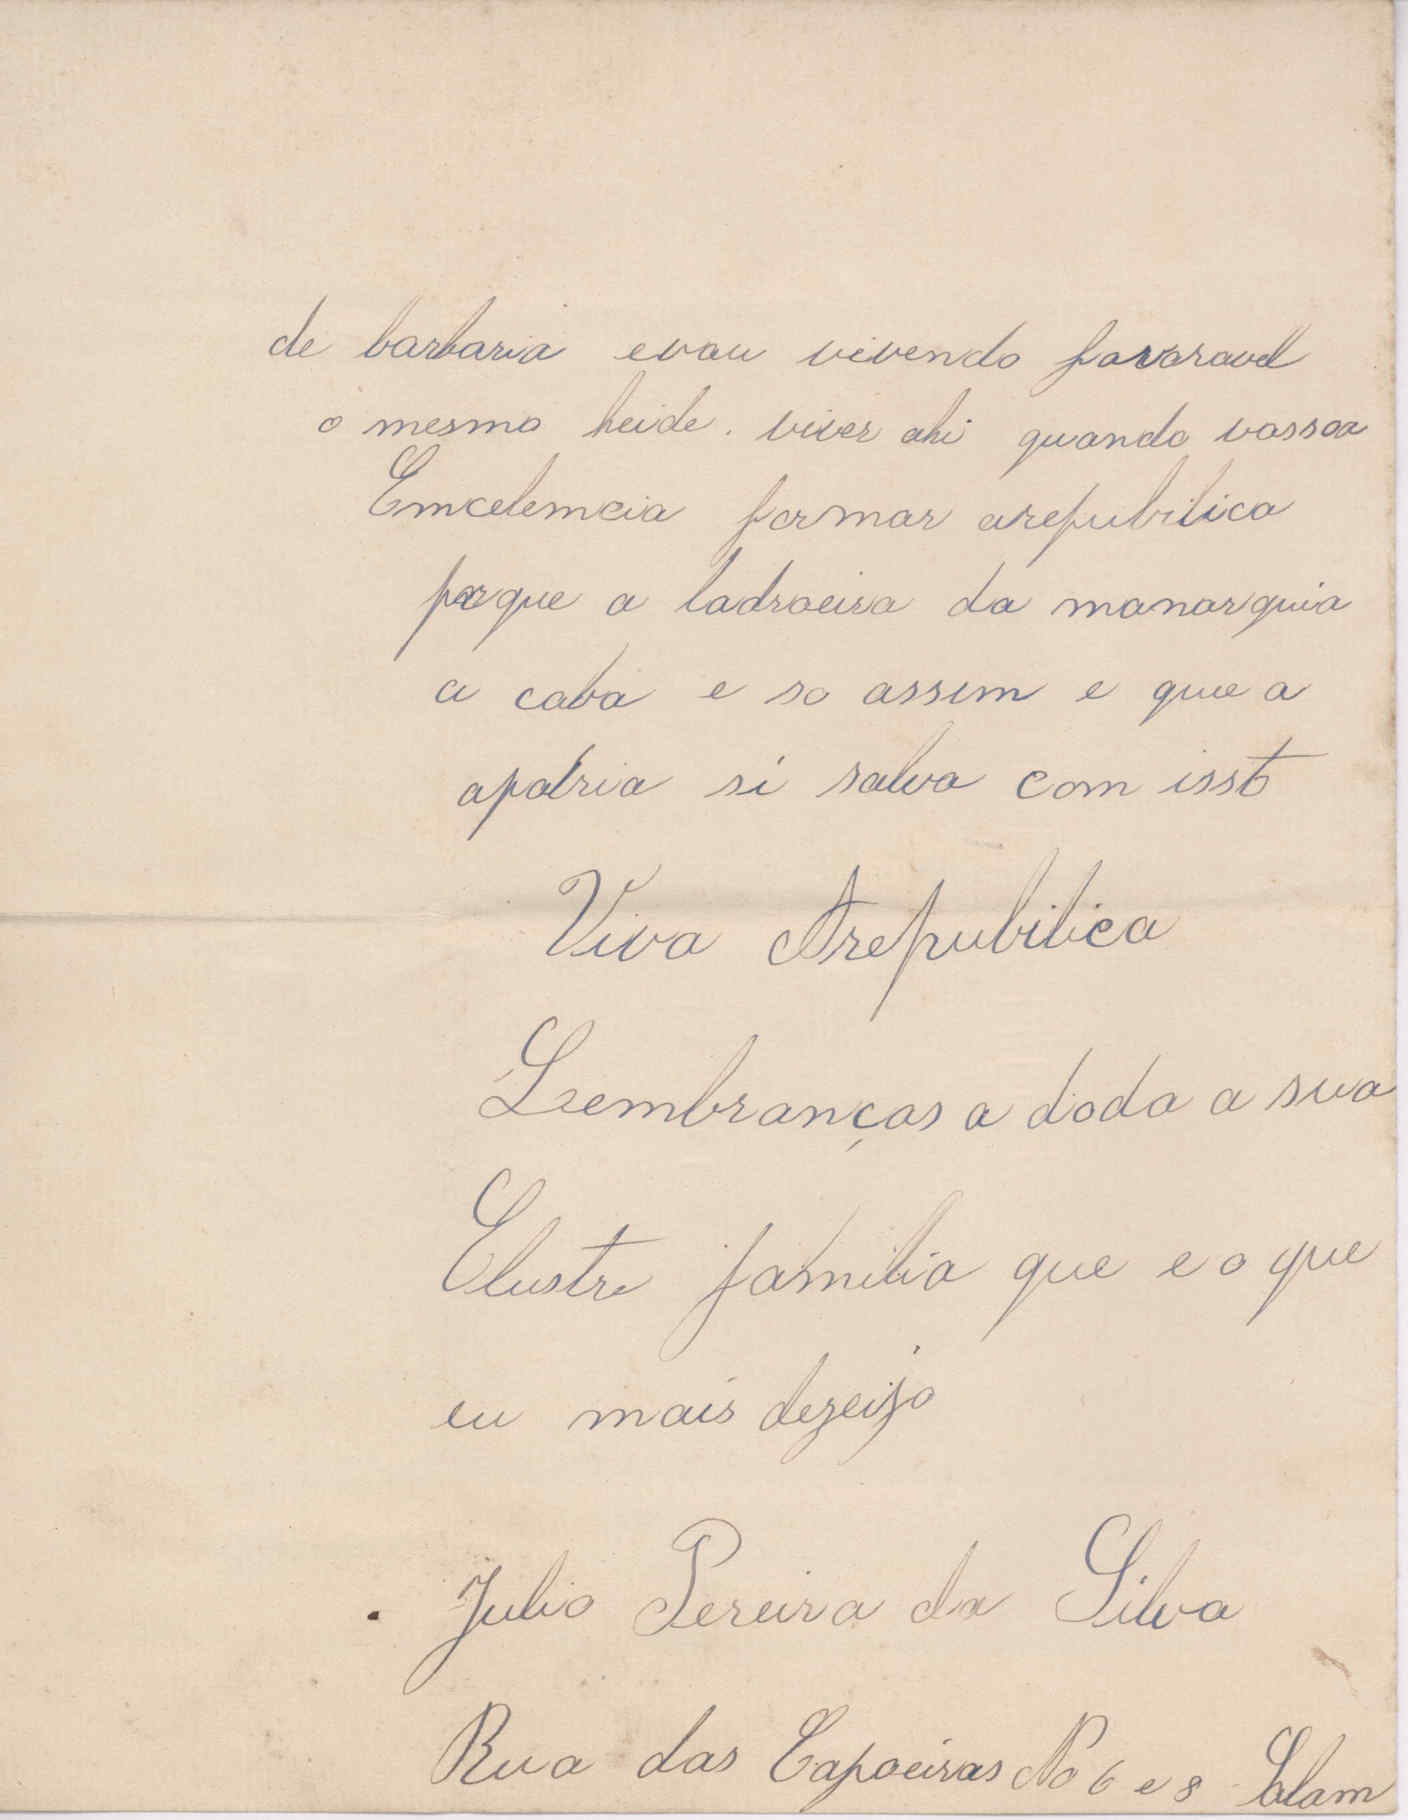 de barbaria evau vivendo favoravel
o mesmo heide. viver ahi quando vossaa
Emcelemcia formar arepubilica
porque a ladroeira da manarquia
a caba e so assim e que a
apatria si salva com isst
Viva Arepubilica
Lembranças a doda a sua
Elustre familia que e o que
eu mais dezeijo
Julio Pereira da Silva
Rua das Capoeiras No 6 e 8